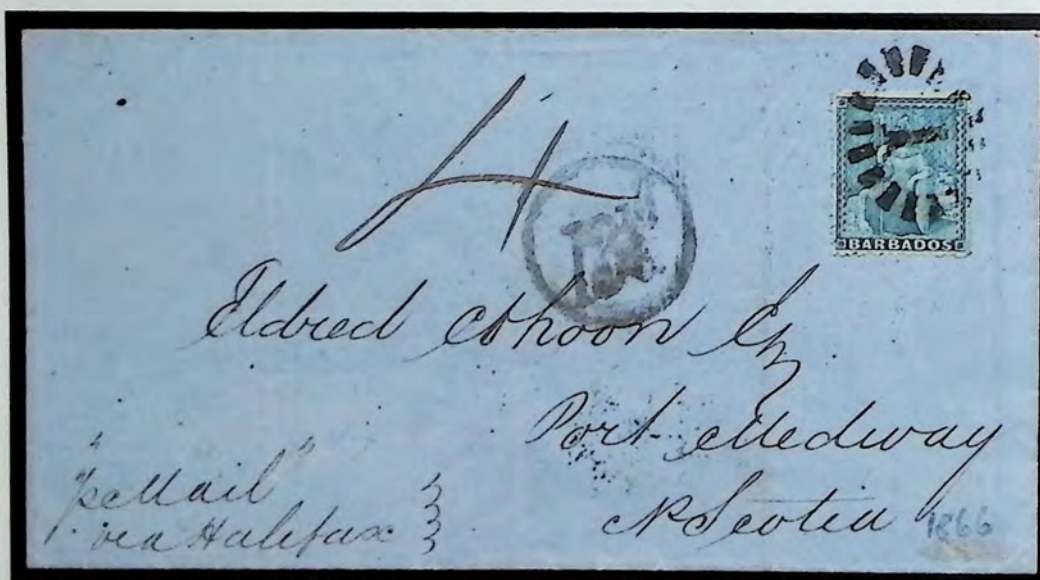 4
BARBADOS
Eldred Cohoon Esq
Port Medway
N Scotia
"pr Mail"
via Halifax
1866